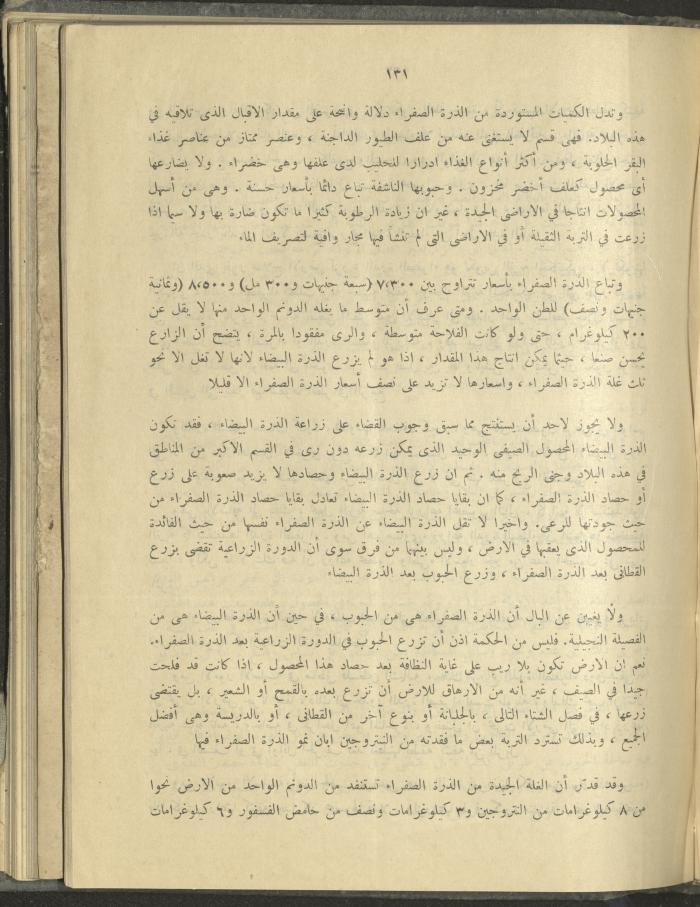 ١٣١
وتدل الكميات المستوردة من الذرة الصفراء دلالة واضحة على مقدار الاقبال الذى تلاقيه في
هذه البلاد. فهى قسم لا يستغنى عنه من علف الطيور الداجنة ، وعنصر ممتاز من عناصر غذاء
البقر الحلوبة ، ومن أكثر أنواع الغذاء ادرارا للحليب لدى علفها وهى خضراء . ولا يضارعها
أى محصول كعلف أخضر مخزون . وحبوبها الناشفة تباع دائما بأسعار حسنة . وهى من أسهل
المحصولات انتاجا في الاراضى الجيدة ، غير ان زيادة الرطوبة كثيرا ما تكون ضارة بها ولا سيما اذا
زرعت في التربة الثقيلة أو في الاراضى التى لم تنشأ فيها مجار وافية لتصريف الماء
وتباع الذرة الصفراء بأسعار تتراوح بين ٧،٣٠٠ (سبعة جنيهات و٣٠٠ مل) و٨،٥٠٠ (وثمانية
جنيهات ونصف) للطن الواحد . ومتى عرف أن متوسط ما يغله الدونم الواحد منها لا يقل عن
٢٠٠ كيلوغرام ، حتى ولو كانت الفلاحة متوسطة ، والرى مفقودا بالمرة ، يتضح أن الزارع
يحسن صنعا ، حيثما يمكن انتاج هذا المقدار ، اذا هو لم يزرع الذرة البيضاء لانها لا تغل الا نحو
ثلث غلة الذرة الصفراء ، واسعارها لا تزيد على نصف أسعار الذرة الصفراء الا قليلا
ولا يجوز لاحد أن يستنتج مما سبق وجوب القضاء على زراعة الذرة البيضاء ، فقد تكون
الذرة البيضاء المحصول الصيفى الوحيد الذى يمكن زرعه دون رى في القسم الاكبر من المناطق
في هذه البلاد وجنى الربح منه . ثم ان زرع الذرة البيضاء وحصادها لا يزيد صعوبة على زرع
أو حصاد الذرة الصفراء ، كما ان بقايا حصاد الذرة البيضاء تعادل بقايا حصاد الذرة الصفراء من
حيث جودتها للرعى. واخيرا لا تقل الذرة البيضاء عن الذرة الصفراء نفسها من حيث الفائدة
للمحصول الذى يعقبها في الارض ، وليس بينهما من فرق سوى أن الدورة الزراعية تقضى بزرع
القطانى بعد الذرة الصفراء ، وزرع الحبوب بعد الذرة البيضاء
ولا يغيبن عن البال أن الذرة الصفراء هى من الحبوب ، في حين أن الذرة البيضاء هى من
الفصيلة النجيلية. فليس من الحكمة اذن أن تزرع الحبوب في الدورة الزراعية بعد الذرة الصفراء.
نعم ان الارض تكون بلا ريب على غاية النظافة بعد حصاد هذا المحصول ، اذا كانت قد فلحت
جيدا في الصيف ، غير أنه من الارهاق للارض أن تزرع بعده بالقمح أو الشعير ، بل يقتضى
زرعها ، في فصل الشتاء التالى ، بالجلبانة أو بنوع آخر من القطانى ، أو بالدريسة وهى أفضل
الجميع ، وبذلك تسترد التربة بعض ما فقدته من النيتروجين ابان نمو الذرة الصفراء فيها
وقد قدّر أن الغلة الجيدة من الذرة الصفراء تستنفد من الدونم الواحد من الارض نحوا
من ٨ كيلوغرامات من النتروجين و٣ كيلوغرامات ونصف من حامض الفسفور و٦ كيلوغرامات